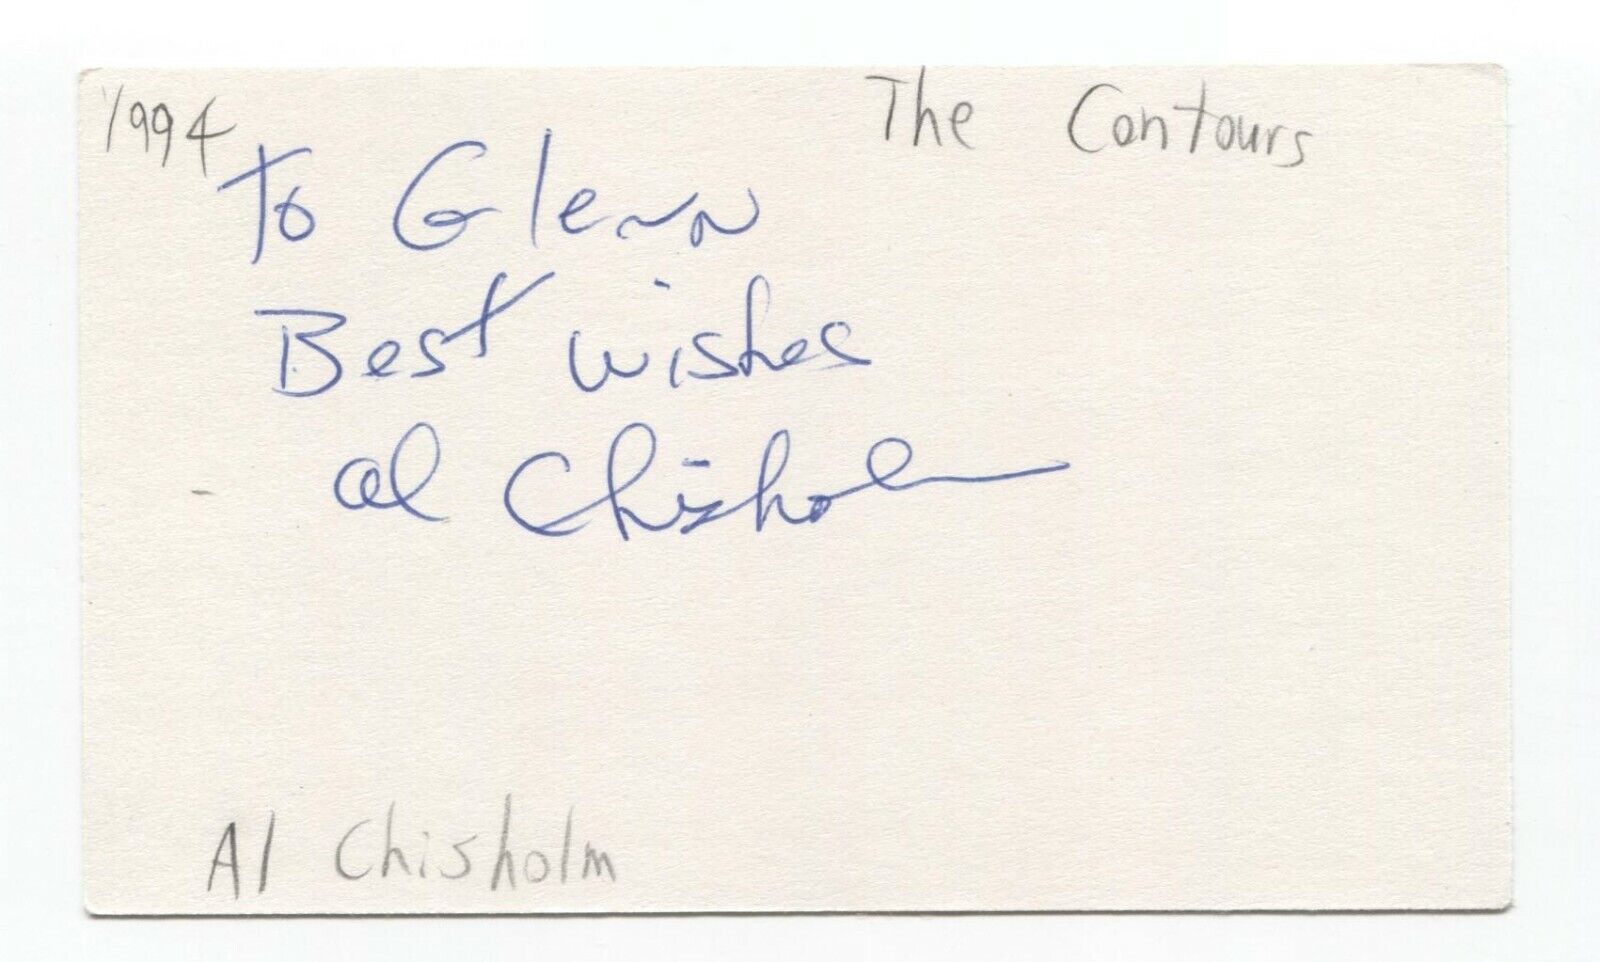 1994
The Contours
To Glenn
Best wishes
Al Chisholm
Al Chisholm